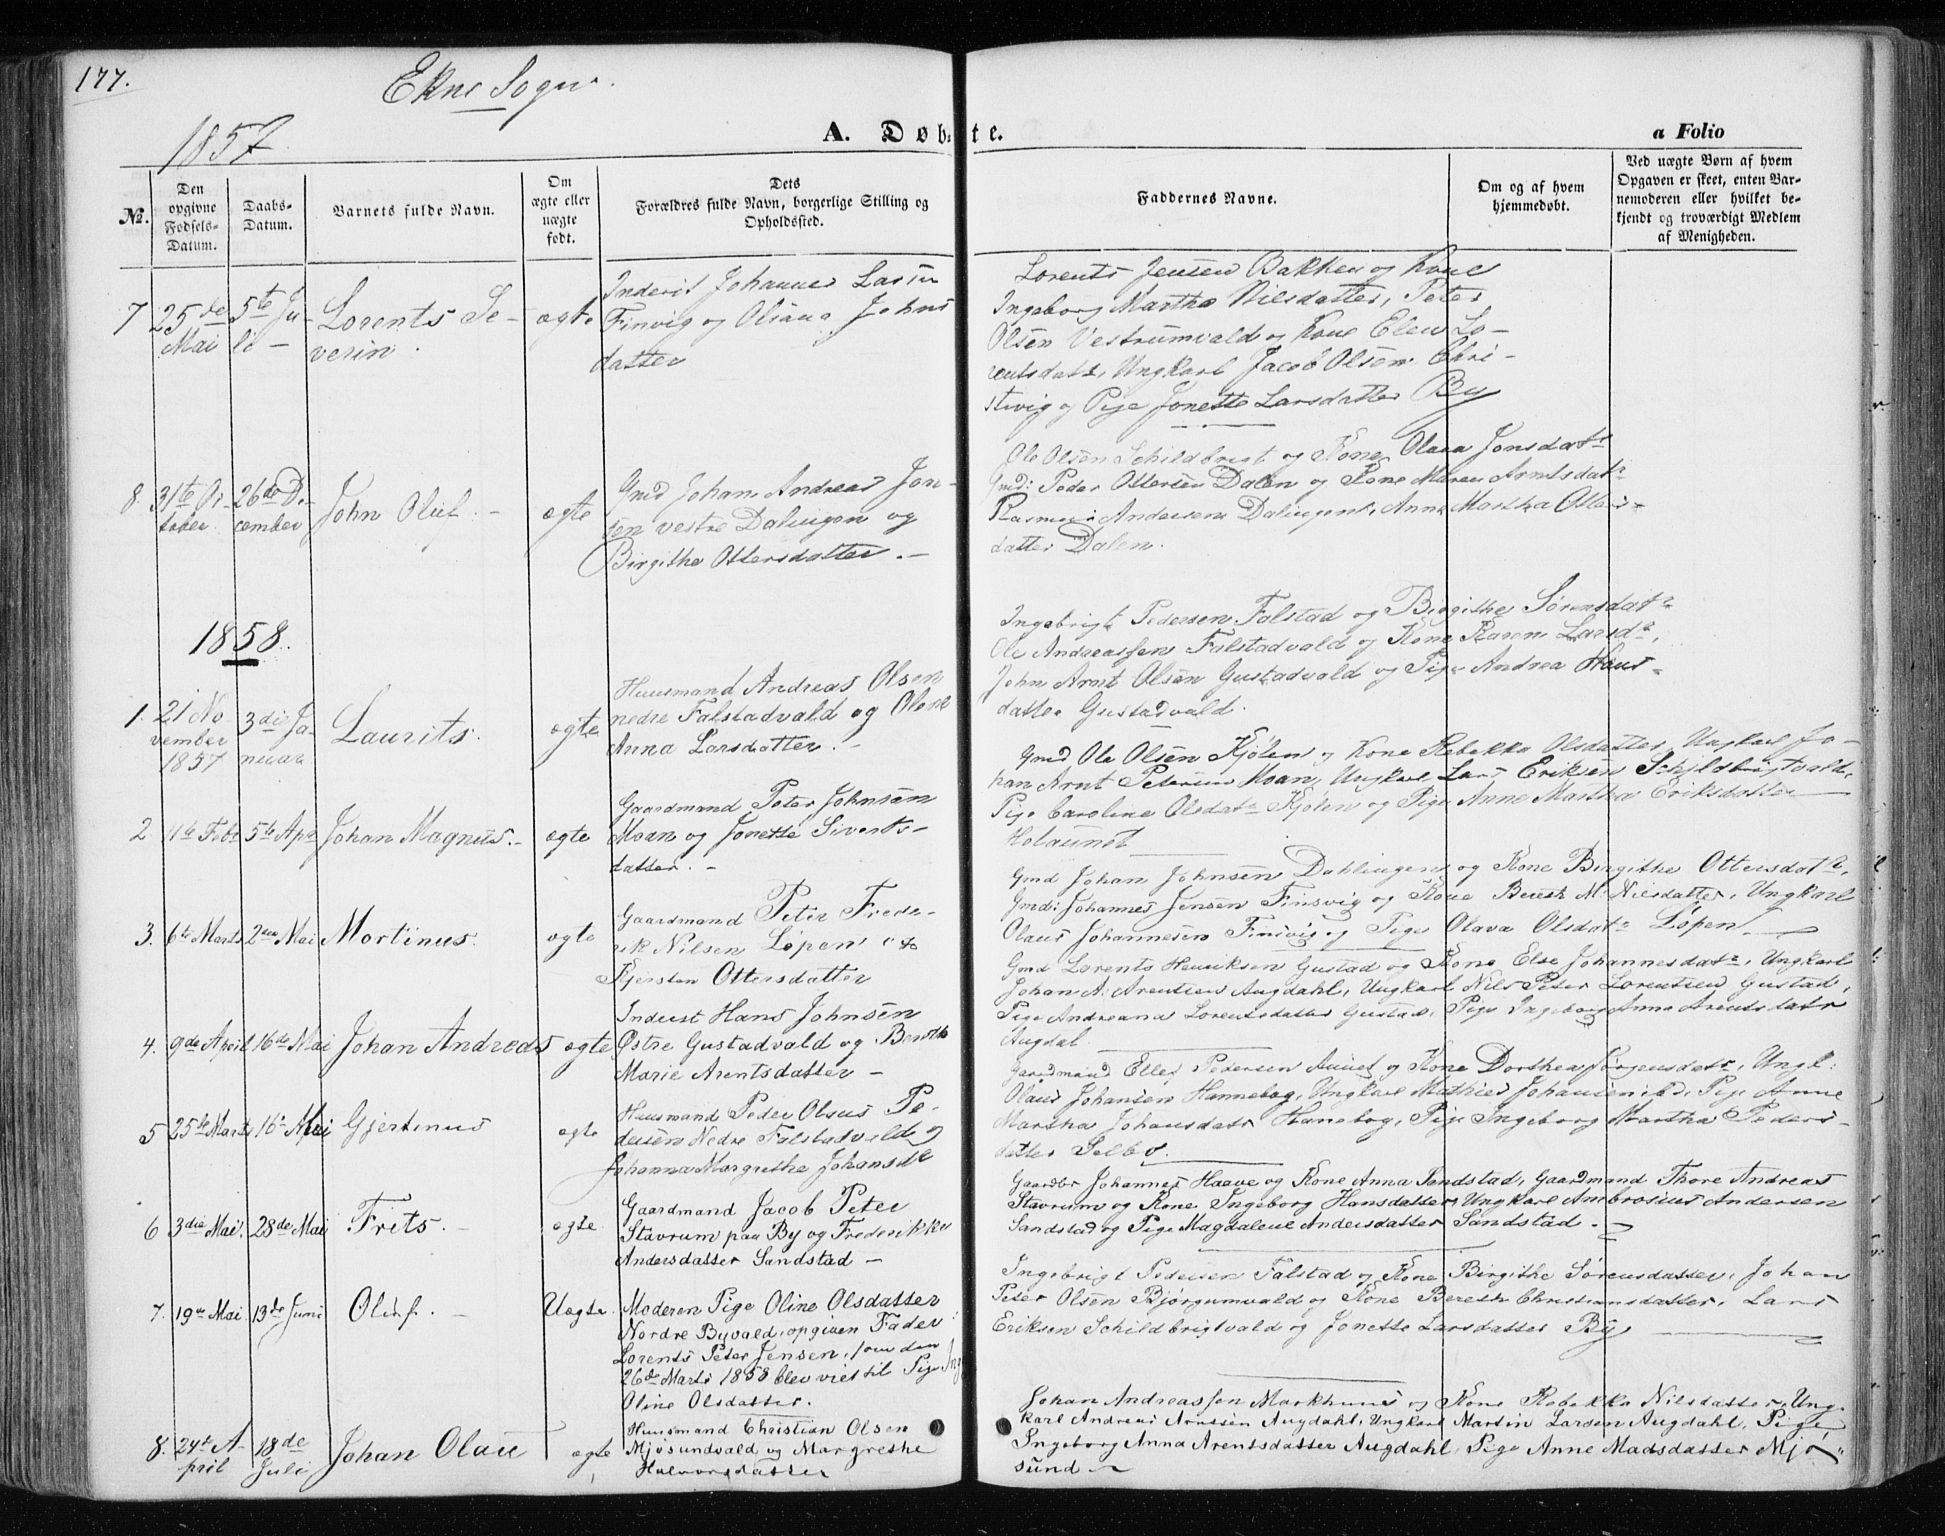 177.
Ekne Sogn.
1857
A. Døbte.
a Folio
№.
Den opgivne Fødsels-Datum.
Daabs-Datum.
Barnets fulde Navn.
Om ægte eller uægte født.
Dets Forældres fulde Navn, borgerlige Stilling og Opholdssted.
Faddernes Navne.
Om og af hvem hjemmedøbt.
Ved uægte Børn af hvem Opgaven er skeet, enten Barnemoderen eller hvilket bekjendt og troværdigt Medlem af Menigheden.
7 25de Mai
5te Juli –
Lorents Severin.
ægte
Inderst Johannes
Finvig og Oliana Johns
datter
Lorents Jensen Bakken og Kone
Ingeborg Martha Nilsdatter, Peter
Olsen Vestrumvald og Kone Elen Lo-
rentsdatt, Ungkarl Jacob Olsen
og Pige Jonette Larsdatter By
8. 31te October
26de December
John Oluf. –
ægte
Gmd Johan Andreas Jon-
sen vestre Dalingen og
Birgithe Ottersdatter. –
Ole Olsen Schildbrigt og Kone Olava Jonsdatr
Gmd: Peder Ottersen Dalen og Kone Maren Arntsdatr
Andersen Dalingen, Anne Martha Otters-
datter Dalen.
1858.
1. 21 November 1857
3die Januar
Laurits.
ægte
Huusmand Andreas Olsen
nedre Falstadvald og Olene
Anna Larsdatter. –
Ingebrigt Pedersen Falstad og Birgithe Sørensdatr
Ole Andreassen Falstadvald og Kone Karen Larsdr,
John Arnt Olsen Gustadvald og Pige Andrea Hans-
datter Gustadvald.
2 11te Febr
5te Apr
Johan Magnus. –
ægte
Gaardmand Peter Johnsen
Moan og Jonette Siverts-
datter. –
Gmd Ole Olsen Kjølen og Kone Rebekka Olsdatter, Ungkarl Jo-
han Arnt Petersen Moan, Ungkarl Lars Eriksen Schildbrigtvald,
Pige Caroline Olsdatr Kjølen og Pige Anne Martha Eriksdatter
Holaunet
3. 6te Marts
2den Mai
Mortinus.
ægte
Gaardmand Peter Frede-
rik Nilsen Løpen og
Kjersten Ottersdatter
Gmd Johan Johnsen Dahlingen og Kone Birgithe Ottersdatr,
Gmd: Johannes Jensen Finsvig og Kone Bereth M. Nilsdatter, Ungkarl
Olaus Johannesen Finsvig og Pige Olava Olsdatr Løpen.
4. 9de April
16de Mai
Johan Andreas
ægte
Inderst Hans Johnsen
Østre Gustadvald og Bereth
Marie Arentsdatter –
Gmd Lorents Henriksen Gustad og Kone Else Johannesdatr, Ungkarl
Johan A: Arentsen Augdahl, Ungkarl Nils Peter Lorentsen Gustad,
Pige Andreana Lorentsdatter Gustad, Pige Ingeborg Anna Arentsdatr
Augdal.
5 25te Marts
16de Mai
Gjertinus
ægte
Huusmand Peder Olaus Pe-
dersen Nedre Falstadvald og
Johanna Margrethe Johansdr
Gaardmand Ellef Pedersen Aunet og Kone Dorthea Jørgensdatr, Ungk:
Olaus Johansen Hannebog, Ungkarl Mathias Johansen ibd, Pige Anne
Martha Johansdatr Hanebog, Pige Ingeborg Martha Peders-
datter Selbo.
6 3die Mai.
28de Mai
Frits. –
ægte.
Gaardmand Jacob Peter
Stavrum paa By og Frederikke
Andersdatter Sandstad –
Gaardbr Johannes Haave og Kone Anna Sandstad, Gaardmand Thore Andreas
Stavrum og Kone Ingeborg Hansdatter, Ungkarl Ambrosius Andersen
Sandstad og Pige Magdalene Andersdatter Sandstad. –
7. 19de Mai
13de Juni
Oluf. –
Uægte.
Moderen Pige Oline Olsdatter
Nordre Byvald, opgiven Fader:
Lorents Peter Jensen, som den
26de Marts 1858 blev viet til Pige
Oline Olsdatter.
Ingebrigt Pedersen Falstad og Kone Birgithe Sørensdatter, Johan
Peter Olsen Bjørgumvald og Kone Bereth Christiansdatter, Lars
Eriksen Schildbrigtvald og Jonette Larsdatter By
8. 24de April
18de Juli
Johan Olau
ægte
Huusmand Christian Olsen
Mjøsundvald og Margrethe
Halvorsdatter
Johan Andreassen Markhuus og Kone Rebekka Nilsdatter, Ung-
karl Andreas Arntsen Augdahl, Ungkarl Martin Larsen Augdahl, Pige
Ingeborg Anna Arentsdatter Augdahl, Pige Anne Madsdatter Mjø-
sund –